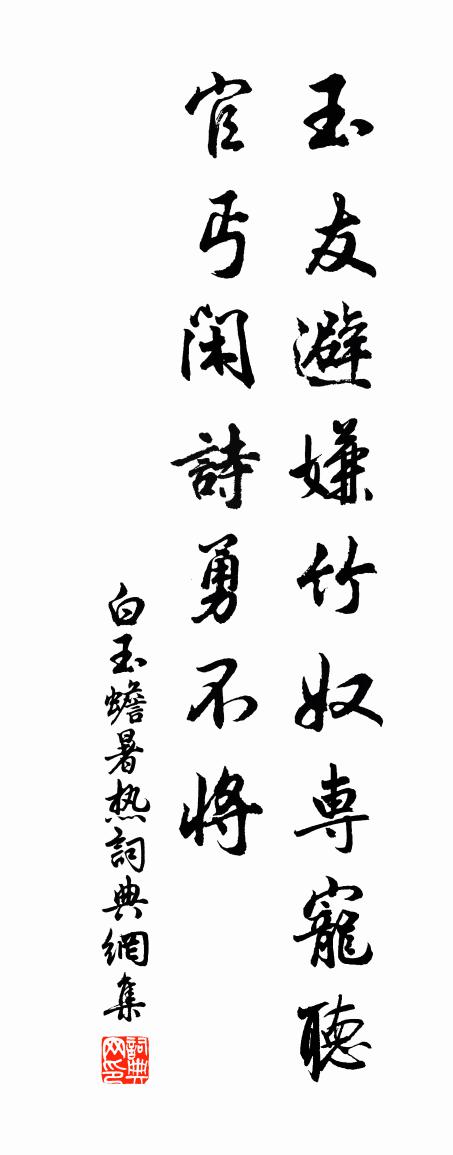 玉友避嫌竹奴專寵聽
官丐閑詩勇不將
白玉蟾暑热詞典網集
詞典网印